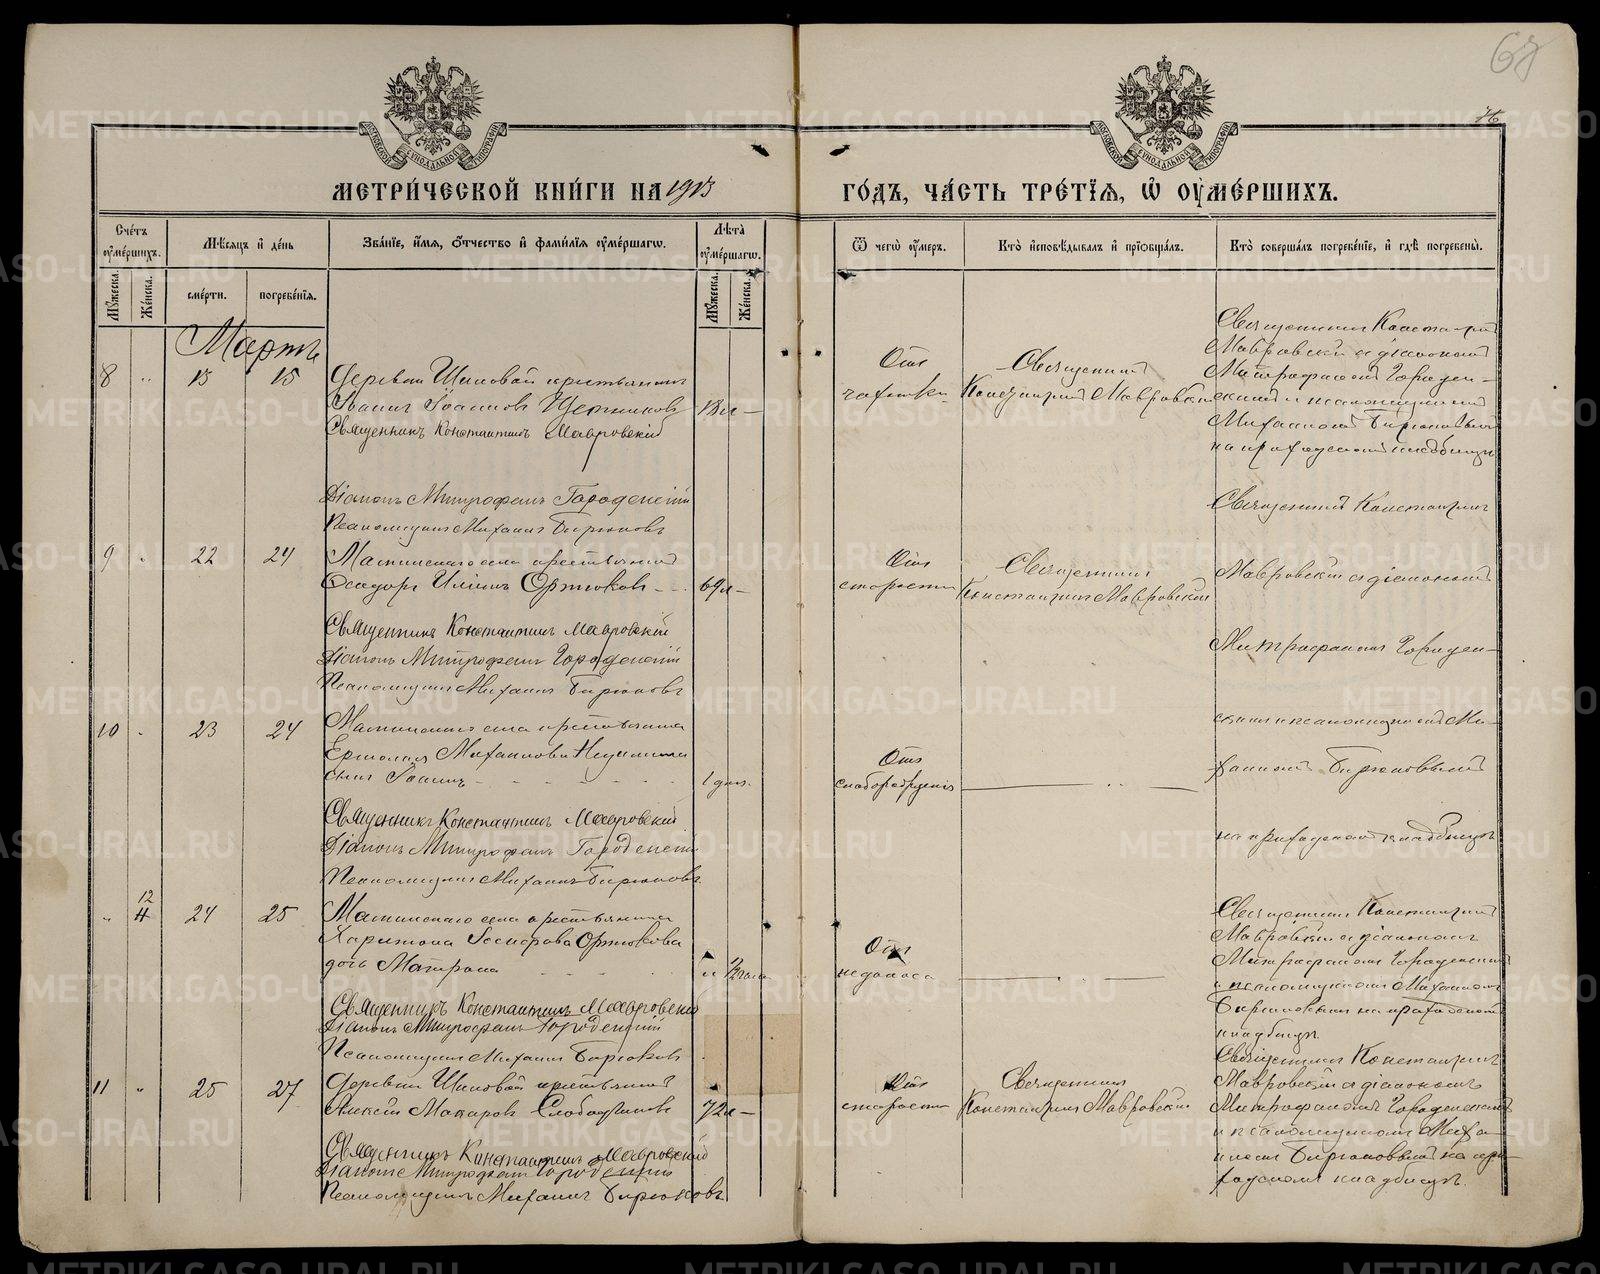 68
76
МОСКОВСКОЙ СѴНОДАЛЬНОЙ ТИПОГРАФІИ
МОСКОВСКОЙ СѴНОДАЛЬНОЙ ТИПОГРАФІИ
МЕТРИ́ЧЕСКОЙ КНИ́ГИ НА 1913
ГО́ДЪ, ЧА́СТЬ ТРЕ́ТЇѦ, Ѡ҆ ОУ҆МЕ́РШИХЪ.
Сче́тъ оу҆ме́ршихъ.
Мѣ́сяцъ и҆ де́нь
Зва́нїе, и҆́мѧ, ѻ҆́тчество и҆ фами́лїѧ оу҆ме́ршагѡ.
Лѣ́та оу҆ме́ршагѡ.
Ѿ чегѡ̀ оу҆́меръ.
Кто̀ и҆сповѣ́дывалъ и҆ прїѡбща́лъ.
Кто̀ соверша́лъ погребе́нїе, и҆ гдѣ̀ погребены̀.
Мꙋ́жеска.
Же́нска.
сме́рти.
погребе́нїѧ.
Мꙋ́жеска.
Же́нска.
Мартъ
8 " 13 15
Деревни Шиловой крестьянинъ
Іоаннъ Іоанновъ
Священникъ Константинъ Мавровскій
Діаконъ Митрофанъ Городенскій
Псаломщикъ Михаилъ Бирюковъ
Отъ чахотки
Священникъ
Константинъ Мавровскій
Священникъ Константинъ
Мавровскій съ діакономъ
Митрофаномъ Городен-
скимъ и псаломщикомъ
Михаиломъ Бирюковымъ
на приходскомъ кладбищѣ
9 " 22 24
села крестьянинъ
Ильинъ Ортюковъ 69 л
Священникъ Константинъ Мавровскій
Діаконъ Митрофанъ Городенскій
Псаломщикъ Михаилъ Бирюковъ
Отъ
старости
Священникъ
Константинъ Мавровскій
Священникъ Константинъ
Мавровскій съ діакономъ
Митрофаномъ Городен-
скимъ и псаломщикомъ Ми-
хаиломъ Бирюковымъ
на приходскомъ кладбищѣ
10 " 23 24
села крестьянина
Ермолая Михаилова
сынъ Іоаннъ 1 дня.
Священникъ Константинъ Мавровскій
Діаконъ Митрофанъ Городенскій
Псаломщикъ Михаилъ Бирюковъ
Отъ
слаборожденія
12
" 11 24 25
села крестьянина
Харитона Ортюкова
дочь Матрона
Священникъ Константинъ Мавровскій
Діаконъ Митрофанъ Городенскій
Псаломщикъ Михаилъ Бирюковъ
Отъ
Священникъ Константинъ
Мавровскій съ діакономъ
Митрофаномъ Городенскимъ
и псаломщикомъ Михаиломъ
Бирюковымъ на приходскомъ
кладбищѣ
11 " 25 27
Деревни Шиловой крестьянинъ
Алексій Макаровъ 72 л
Священникъ Константинъ Мавровскій
Діаконъ Митрофанъ Городенскій
Псаломщикъ Михаилъ Бирюковъ
Отъ
старости
Священникъ
Константинъ Мавровскій
Священникъ Константинъ
Мавровскій съ діакономъ
Митрофаномъ Городенскимъ
и псаломщикомъ Миха-
иломъ Бирюковымъ на при-
ходскомъ кладбищѣ.
METRIKI.GASO-URAL.RU